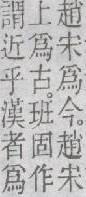 趙宋爲今。趙宋
上爲古。班固作
謂近乎漢者爲